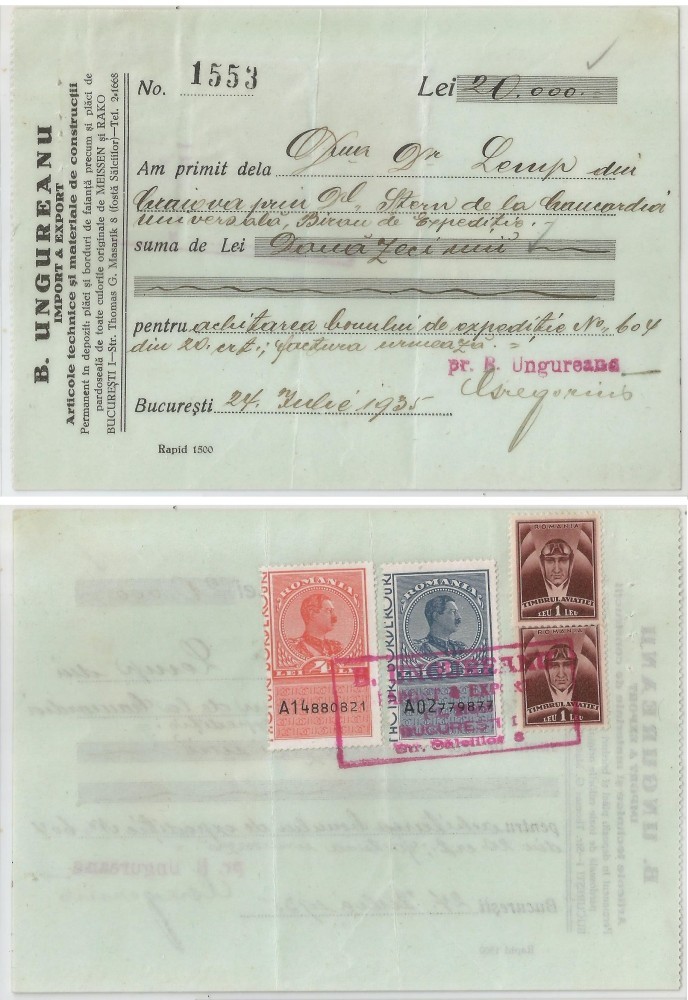 B. UNGUREANU
IMPORT & EXPORT
Articole technice și materiale de construcții
Permanent în depozit: plăci și borduri de faianță precum și plăci de
pardoseală de toate culorile originale de MEISSEN și RAKO
BUCUREȘTI I—Str. Thomas G. Masarik 8 (fostă Sălciilor)—Tel. 2.1668
No. 1553
Lei 20.000.
Am primit dela Dr Lemp din
Craiova prin Dl. Stern de la Concordia
Universală, Birou de Expediție.
suma de Lei Două zeci mii
pentru achitarea bonului de expediție No. 604
din 20. crt., factura urmează. =
pr. B. Ungureanu
București 24. Iulie 1935
Rapid 1500
ROMANIA
LEI 4 LEI
A14880821
ROMANIA
A02779877
ROMANIA
TIMBRUL AVIAȚIEI
LEU 1 LEU
ROMANIA
TIMBRUL AVIAȚIEI
LEU 1 LEU
B. UNGUREANU
IMPORT & EXPORT
BUCUREȘTI I
Str. Sălciilor 8